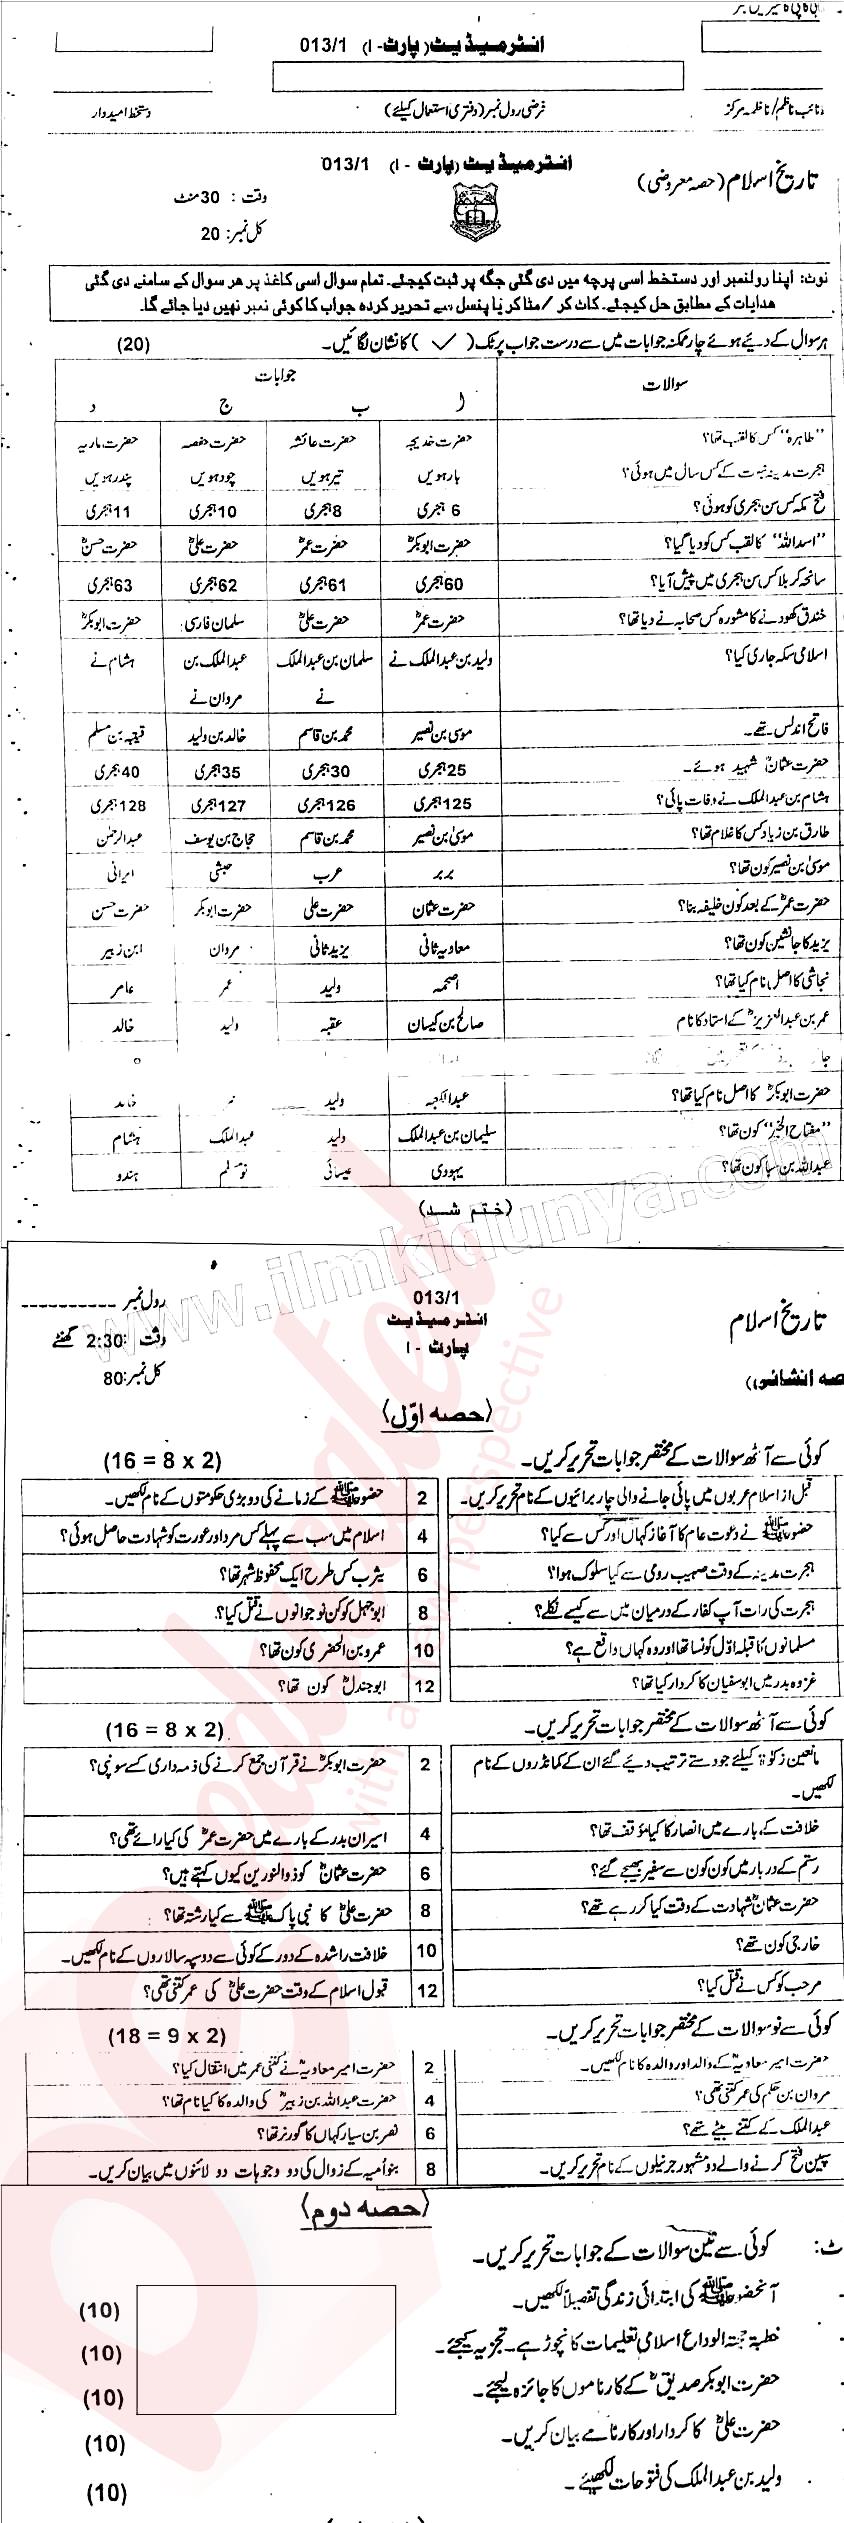 انٹرمیڈیٹ (پارٹ - I) 013/1
نائب ناظم / ناظمہ مرکز
فرضی رول نمبر (دفتری استعمال کیلئے)
دستخط امیدوار
انٹرمیڈیٹ (پارٹ - I) 013/1
تاریخ اسلام (حصہ معروضی)
وقت : 30 منٹ
کل نمبر: 20
نوٹ: اپنا رولنمبر اور دستخط اسی پرچہ میں دی گئی جگہ پر ثبت کیجئے۔ تمام سوال اسی کاغذ پر ہر سوال کے سامنے دی گئی
ہدایات کے مطابق حل کیجئے۔ کاٹ کر / مٹا کر یا پنسل سے تحریر کردہ جواب کا کوئی نمبر نہیں دیا جائے گا۔
ہر سوال کے دیئے ہوئے چار ممکنہ جوابات میں سے درست جواب پر ٹک ( ✓ ) کا نشان لگائیں۔ (20)
سوالات جوابات
ا ب ج د
"طاہرہ" کس کا لقب تھا؟ حضرت خدیجہ حضرت عائشہ حضرت حفصہ حضرت ماریہ
ہجرت مدینہ نبوت کے کس سال میں ہوئی؟ بارہویں تیرہویں چودہویں پندرہویں
فتح مکہ کس سن ہجری کو ہوئی؟ 6 ہجری 8 ہجری 10 ہجری 11 ہجری
"اسد اللہ" کا لقب کس کو دیا گیا؟ حضرت ابوبکرؓ حضرت عمرؓ حضرت علیؓ حضرت حسنؓ
سانحہ کربلا کس سن ہجری میں پیش آیا؟ 60 ہجری 61 ہجری 62 ہجری 63 ہجری
خندق کھودنے کا مشورہ کس صحابہ نے دیا تھا؟ حضرت عمرؓ حضرت علیؓ سلمان فارسی حضرت ابوبکرؓ
اسلامی سکہ جاری کیا؟ ولید بن عبدالملک نے سلمان بن عبدالملک نے عبدالملک بن مروان نے ہشام نے
فاتح اندلس تھے۔ موسیٰ بن نصیر محمد بن قاسم خالد بن ولید قتیبہ بن مسلم
حضرت عثمانؓ شہید ہوئے۔ 25 ہجری 30 ہجری 35 ہجری 40 ہجری
ہشام بن عبدالملک نے وفات پائی؟ 125 ہجری 126 ہجری 127 ہجری 128 ہجری
طارق بن زیاد کس کا غلام تھا؟ موسیٰ بن نصیر محمد بن قاسم حجاج بن یوسف عبدالرحمٰن
موسیٰ بن نصیر کون تھا؟ بربر عرب حبشی ایرانی
حضرت عمرؓ کے بعد کون خلیفہ بنا؟ حضرت عثمان حضرت علی حضرت ابوبکر حضرت حسن
یزید کا جانشین کون تھا؟ معاویہ ثانی یزید ثانی مروان ابن زبیر
نجاشی کا اصل نام کیا تھا؟ اصحمہ ولید عمر عامر
عمر بن عبدالعزیزؒ کے استاد کا نام صالح بن کیسان عقبہ ولید خالد
حضرت ابوبکرؓ کا اصل نام کیا تھا؟ عبدالکعبہ ولید خالد
"مفتاح الخیر" کون تھا؟ سلیمان بن عبدالملک ولید عبدالملک ہشام
عبداللہ بن سبا کون تھا؟ یہودی عیسائی نومسلم ہندو
(ختم شد)
www.ilmkidunya.com
تاریخ اسلام
013/1
انٹرمیڈیٹ
پارٹ - I
رول نمبر ----------
وقت : 2:30 گھنٹے
کل نمبر: 80
(حصہ اوّل)
کوئی سے آٹھ سوالات کے مختصر جوابات تحریر کریں۔ (16 = 8 x 2)
قبل از اسلام عربوں میں پائی جانے والی چار برائیوں کے نام تحریر کریں۔ 2 حضور ﷺ کے زمانے کی دو بڑی حکومتوں کے نام لکھیں۔
حضور ﷺ نے دعوت عام کا آغاز کہاں اور کس سے کیا؟ 4 اسلام میں سب سے پہلے کس مرد اور عورت کو شہادت حاصل ہوئی؟
ہجرت مدینہ کے وقت صہیب رومی سے کیا سلوک ہوا؟ 6 یثرب کس طرح ایک محفوظ شہر تھا؟
ہجرت کی رات آپ کفار کے درمیان میں سے کیسے نکلے؟ 8 ابوجہل کو کن نوجوانوں نے قتل کیا؟
مسلمانوں کا قبلہ اوّل کونسا تھا اور وہ کہاں واقع ہے؟ 10 عمرو بن الحضری کون تھا؟
غزوہ بدر میں ابوسفیان کا کردار کیا تھا؟ 12 ابوجندلؓ کون تھا؟
کوئی سے آٹھ سوالات کے مختصر جوابات تحریر کریں۔ (16 = 8 x 2)
مانعین زکوٰۃ کیلئے جو دستے ترتیب دیئے گئے ان کے کمانڈروں کے نام لکھیں۔ 2 حضرت ابوبکرؓ نے قرآن جمع کرنے کی ذمہ داری کسے سونپی؟
خلافت کے بارے میں انصار کا کیا مؤقف تھا؟ 4 اسیران بدر کے بارے میں حضرت عمرؓ کی کیا رائے تھی؟
رستم کے دربار میں کون کون سے سفیر بھیجے گئے؟ 6 حضرت عثمانؓ کو ذوالنورین کیوں کہتے ہیں؟
حضرت عثمانؓ شہادت کے وقت کیا کر رہے تھے؟ 8 حضرت علیؓ کا نبی پاک ﷺ سے کیا رشتہ تھا؟
خارجی کون تھے؟ 10 خلافت راشدہ کے دور کے کوئی سے دو سپہ سالاروں کے نام لکھیں۔
مرحب کو کس نے قتل کیا؟ 12 قبول اسلام کے وقت حضرت علیؓ کی عمر کتنی تھی؟
کوئی سے نو سوالات کے مختصر جوابات تحریر کریں۔ (18 = 9 x 2)
حضرت امیر معاویہؓ کے والد اور والدہ کا نام لکھیں۔ 2 حضرت امیر معاویہؓ نے کتنی عمر میں انتقال کیا؟
مروان بن حکم کی عمر کتنی تھی؟ 4 حضرت عبداللہ بن زبیرؓ کی والدہ کا کیا نام تھا؟
عبدالملک کے کتنے بیٹے تھے؟ 6 نصر بن سیار کہاں کا گورنر تھا؟
سپین فتح کرنے والے دو مشہور جرنیلوں کے نام تحریر کریں۔ 8 بنو اُمیہ کے زوال کی دو وجوہات دو لائنوں میں بیان کریں۔
(حصہ دوم)
کوئی سے تین سوالات کے جوابات تحریر کریں۔
آنحضور ﷺ کی ابتدائی زندگی تفصیلاً لکھیں۔ (10)
خطبۃ حجۃ الوداع اسلامی تعلیمات کا نچوڑ ہے۔ تجزیہ کیجئے۔ (10)
حضرت ابوبکر صدیقؓ کے کارناموں کا جائزہ لیجئے۔ (10)
حضرت علیؓ کا کردار اور کارنامے بیان کریں۔ (10)
ولید بن عبدالملک کی فتوحات لکھیئے۔ (10)